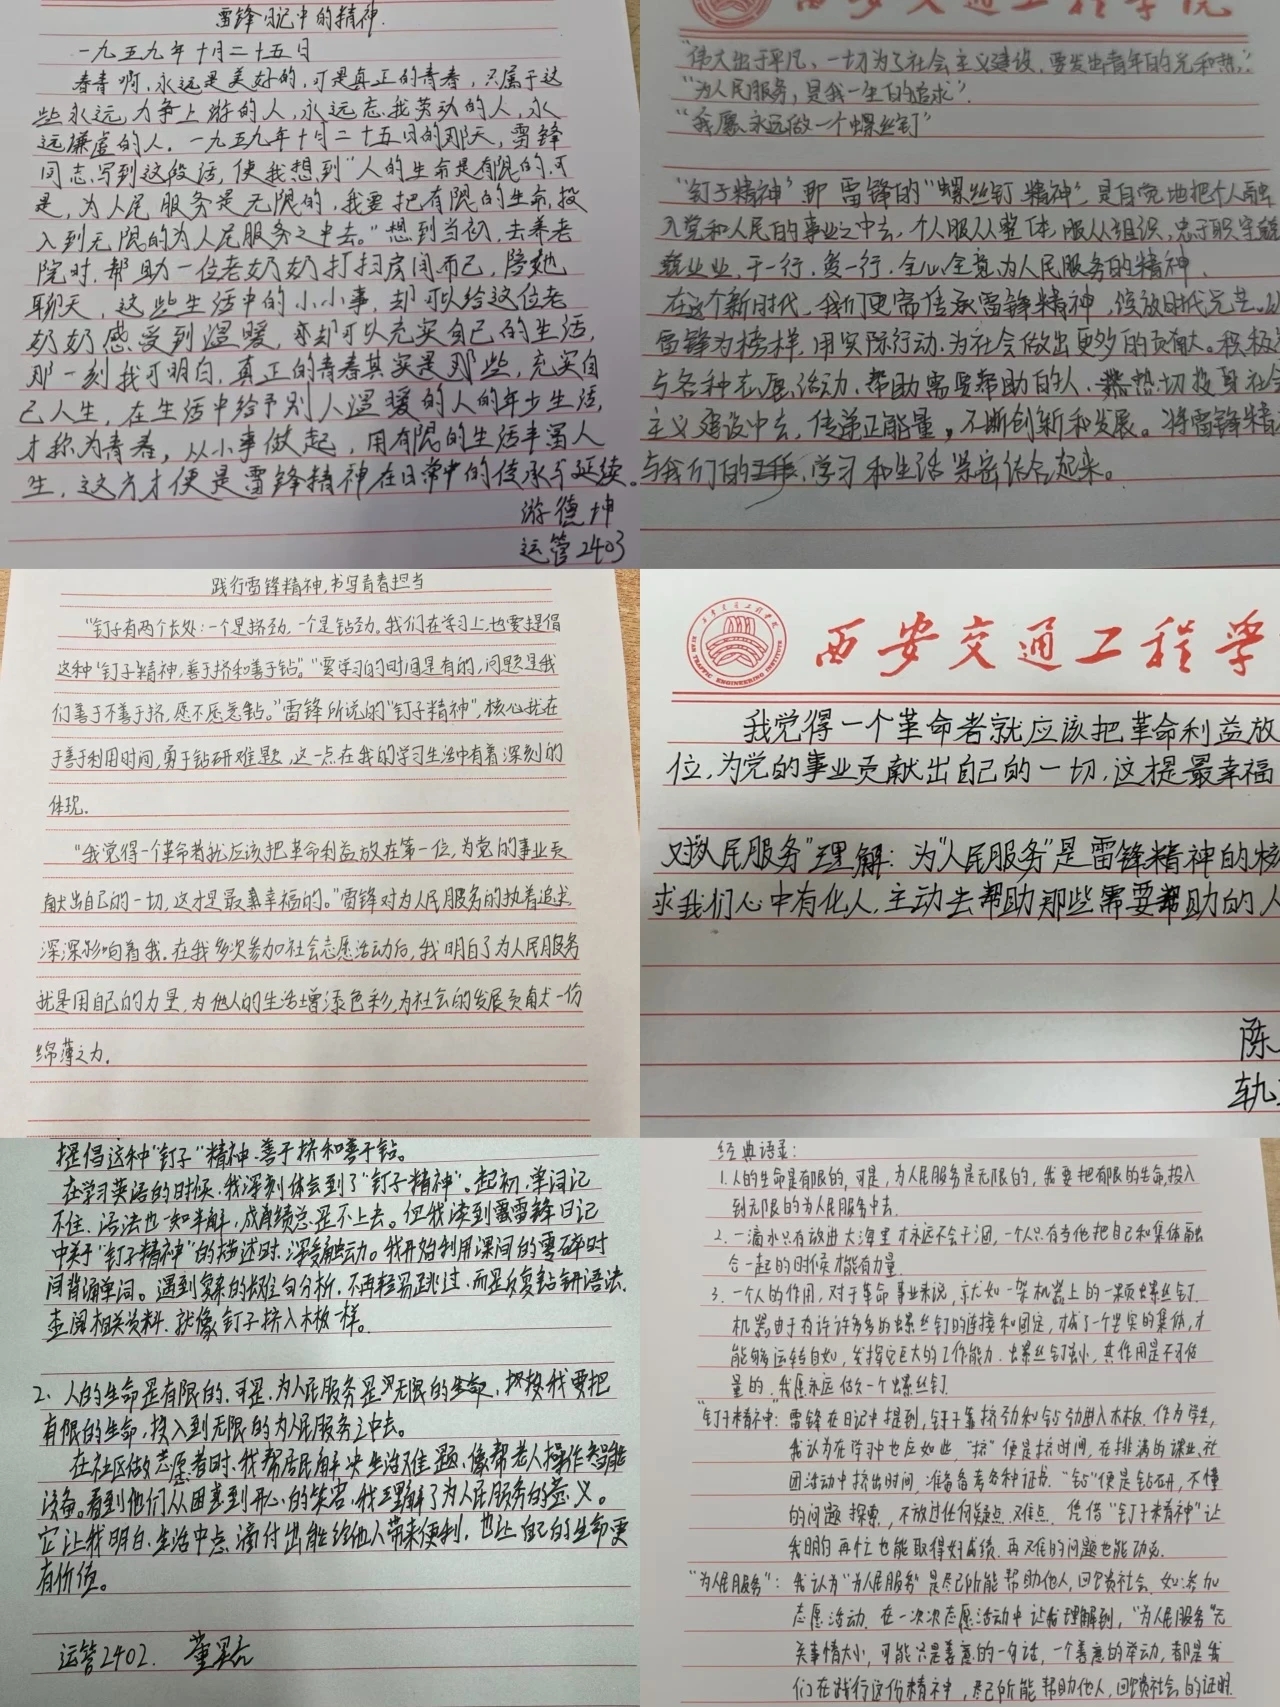 雷锋日记中的精神.
一九五九年十月二十五日
青春啊,永远是美好的,可是真正的青春,只属于这
些永远力争上游的人,永远忘我劳动的人,永
远谦虚的人.一九五九年十月二十五日的那天,雷锋
同志写到这段话,使我想到"人的生命是有限的.可
是,为人民服务是无限的,我要把有限的生命,投
入到无限的为人民服务之中去。"想到当初,去养老
院时.帮助一位老奶奶打扫房间而已,陪她
聊天,这些生活中的小小事,却可以给这位老
奶奶感受到温暖,亦却可以充实自己的生活,
那一刻我可明白,真正的青春其实是那些,充实自
己人生,在生活中给予别人温暖的人的年少生活,
才称为青春,从小事做起,用有限的生活丰满人
生,这方才便是雷锋精神在日常中的传承于延续。
游德坤
运管2403
西安交通工程学院
"伟大出于平凡、一切为了社会主义建设,要发出青年的光和热;"
"为人民服务,是我一生的追求".
"我愿永远做一个螺丝钉"
"钉子精神"即雷锋的"螺丝钉精神",是自觉地把个人融
入党和人民的事业之中去,个人服从整体,服从组织,忠于职守兢
兢业业,干一行,爱一行,全心全意为人民服务的精神.
在这个新时代,我们更需传承雷锋精神,绽放时代光芒.以
雷锋为榜样,用实际行动,为社会做出更多的贡献。积极参
与各种志愿活动,帮助需要帮助的人、热切投身社会
主义建设中去,传递正能量,不断创新和发展。将雷锋精神
与我们的 学习和生活紧密结合起来。
践行雷锋精神,书写青春担当
"钉子有两个长处:一个是挤劲,一个是钻劲。我们在学习上,也要提倡
这种"钉子"精神,善于挤和善于钻。""要学习的时间是有的,问题是我
们善于不善于挤,愿不愿意钻。"雷锋所说的"钉子精神",核心就在
于善于利用时间,勇于钻研难题,这一点在我的学习生活中有着深刻的
体现.
"我觉得一个革命者就应该把革命利益放在第一位,为党的事业贡
献出自己的一切,这才是最幸福的。"雷锋对为人民服务的执着追求,
深深影响着我.在我多次参加社会志愿活动后,我明白了为人民服务
就是用自己的力量,为他人的生活增添色彩,为社会的发展贡献一份
绵薄之力.
西安交通工程学
XI'AN TRAFFIC ENGINEERING INSTITUTE
我觉得一个革命者就应该把革命利益放
位,为党的事业贡献出自己的一切,这才是最幸福
对"人民服务"理解:为"人民服务"是雷锋精神的核
求我们心中有化人,主动去帮助那些需要帮助的人
陈
轨
提倡这种"钉子"精神、善于挤和善于钻。
在学习英语的时候,我深刻体会到了"钉子精神"。起初,单词记
不住,语法也一知半解,成绩总是不上去。但我读到雷锋日记
中关于"钉子精神"的描述时,深受触动。我开始利用课间的零碎时
间背诵单词。遇到复杂的长难句分析,不再轻易跳过,而是反复钻研语法、
查阅相关资料.就像钉子挤入木板一样。
2.人的生命是有限的.可是.为人民服务是无限的,我要把
有限的生命,投入到无限的为人民服务之中去。
在社区做志愿者时,我帮居民解决生活难题,像帮老人操作智能
设备。看到他们从困惑到开心的笑容,我理解了为人民服务的意义。
它让我明白,生活中点滴付出能给他人带来便利,也让自己的生命更
有价值。
运管2402. 董
经典语录:
1.人的生命是有限的,可是,为人民服务是无限的,我要把有限的生命,投入
到无限的为人民服务中去.
2.一滴水只有放进大海里才永远不会干涸,一个人只有当他把自己和集体融
合一起的时候才能有力量.
3.一个人的作用,对于革命事业来说,就如一架机器上的一颗螺丝钉.
机器由于有许许多多的螺丝钉的连接和固定,才成了一个坚实的集体,才
能够运转自如,发挥它巨大的工作能力.螺丝钉虽小,其作用是不可估
量的.我愿永远做一个螺丝钉.
"钉子精神":雷锋在日记中提到,钉子靠挤劲和钻劲进入木板.作为学生,
我认为在学习中也应如此,"挤"便是挤时间,在排满的课业、社
团活动中挤出时间,准备备考各种证书."钻"便是钻研,不懂
的问题探索,不放过任何疑点、难点.凭借"钉子精神"让
我明白再忙也能取得好成绩.再难的问题也能攻克.
"为人民服务":我认为"为人民服务"是尽己所能帮助他人,回馈社会.如:参加
志愿活动.在一次次志愿活动中让我理解到,"为人民服务"无
关事情大小,可能只是善意的一句话,一个善意的举动,都是我
们在践行这份精神,尽己所能帮助他人,回馈社会的证明